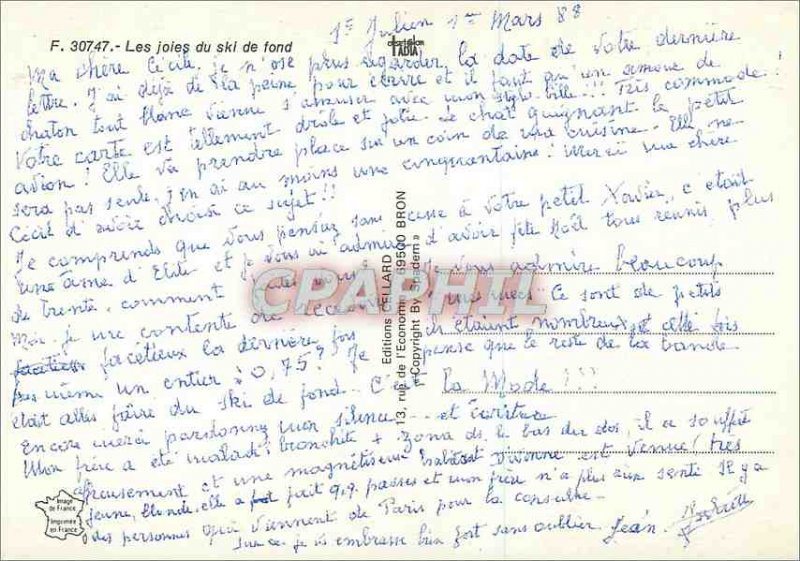 F. 30747.- Les joies du ski de fond
St Julien 1er Mars 88
Ma chère Cécile, je n'ose plus regarder la date de votre dernière
lettre. J'ai déjà de la peine pour écrire et il faut qu'un amour de
chaton tout blanc vienne s'amuser avec mon stylo bille!!! Très commode!
Votre carte est tellement drôle et jolie. Le chat guignant le petit
avion! Elle va prendre place sur un coin de ma cuisine. Elle ne
sera pas seule, j'en ai au moins une cinquantaine! Merci ma chère
Cécil d'avoir choisi ce sujet!!
Je comprends que vous pensiez sans cesse à votre petit Xavier, c'était
une âme d'Elite et je vous admire d'avoir fêté Noël tous réunis, plus
de trente, comment Je vous admire beaucoup
Moi je me contente de recevoir mes Ce sont de petits
facétieux la dernière fois étant nombreux et cette fois
pas même un entier: 0,75? Je pense que le reste de la bande
était allés faire du ski de fond. C'est la Mode!!!
Encore merci pardonnez mon silence et
Mon frère a été malade: bronchite + zona ds. le bas du dos, il a souffert
affreusement et une magnétiseuse habitant Divonne est venue (très
jeune, blonde, elle a fait qq. passes et mon frère n'a plus rien senti. Il y a
des personnes qui viennent de Paris pour la consulter.
Sur ce je vs embrasse bien fort sans oublier Jean.
Editions CELLARD
13, rue de l'Economie 69500 BRON
«Copyright By Stadem»
CPAPHIL
Image
de France
Imprimée
en France